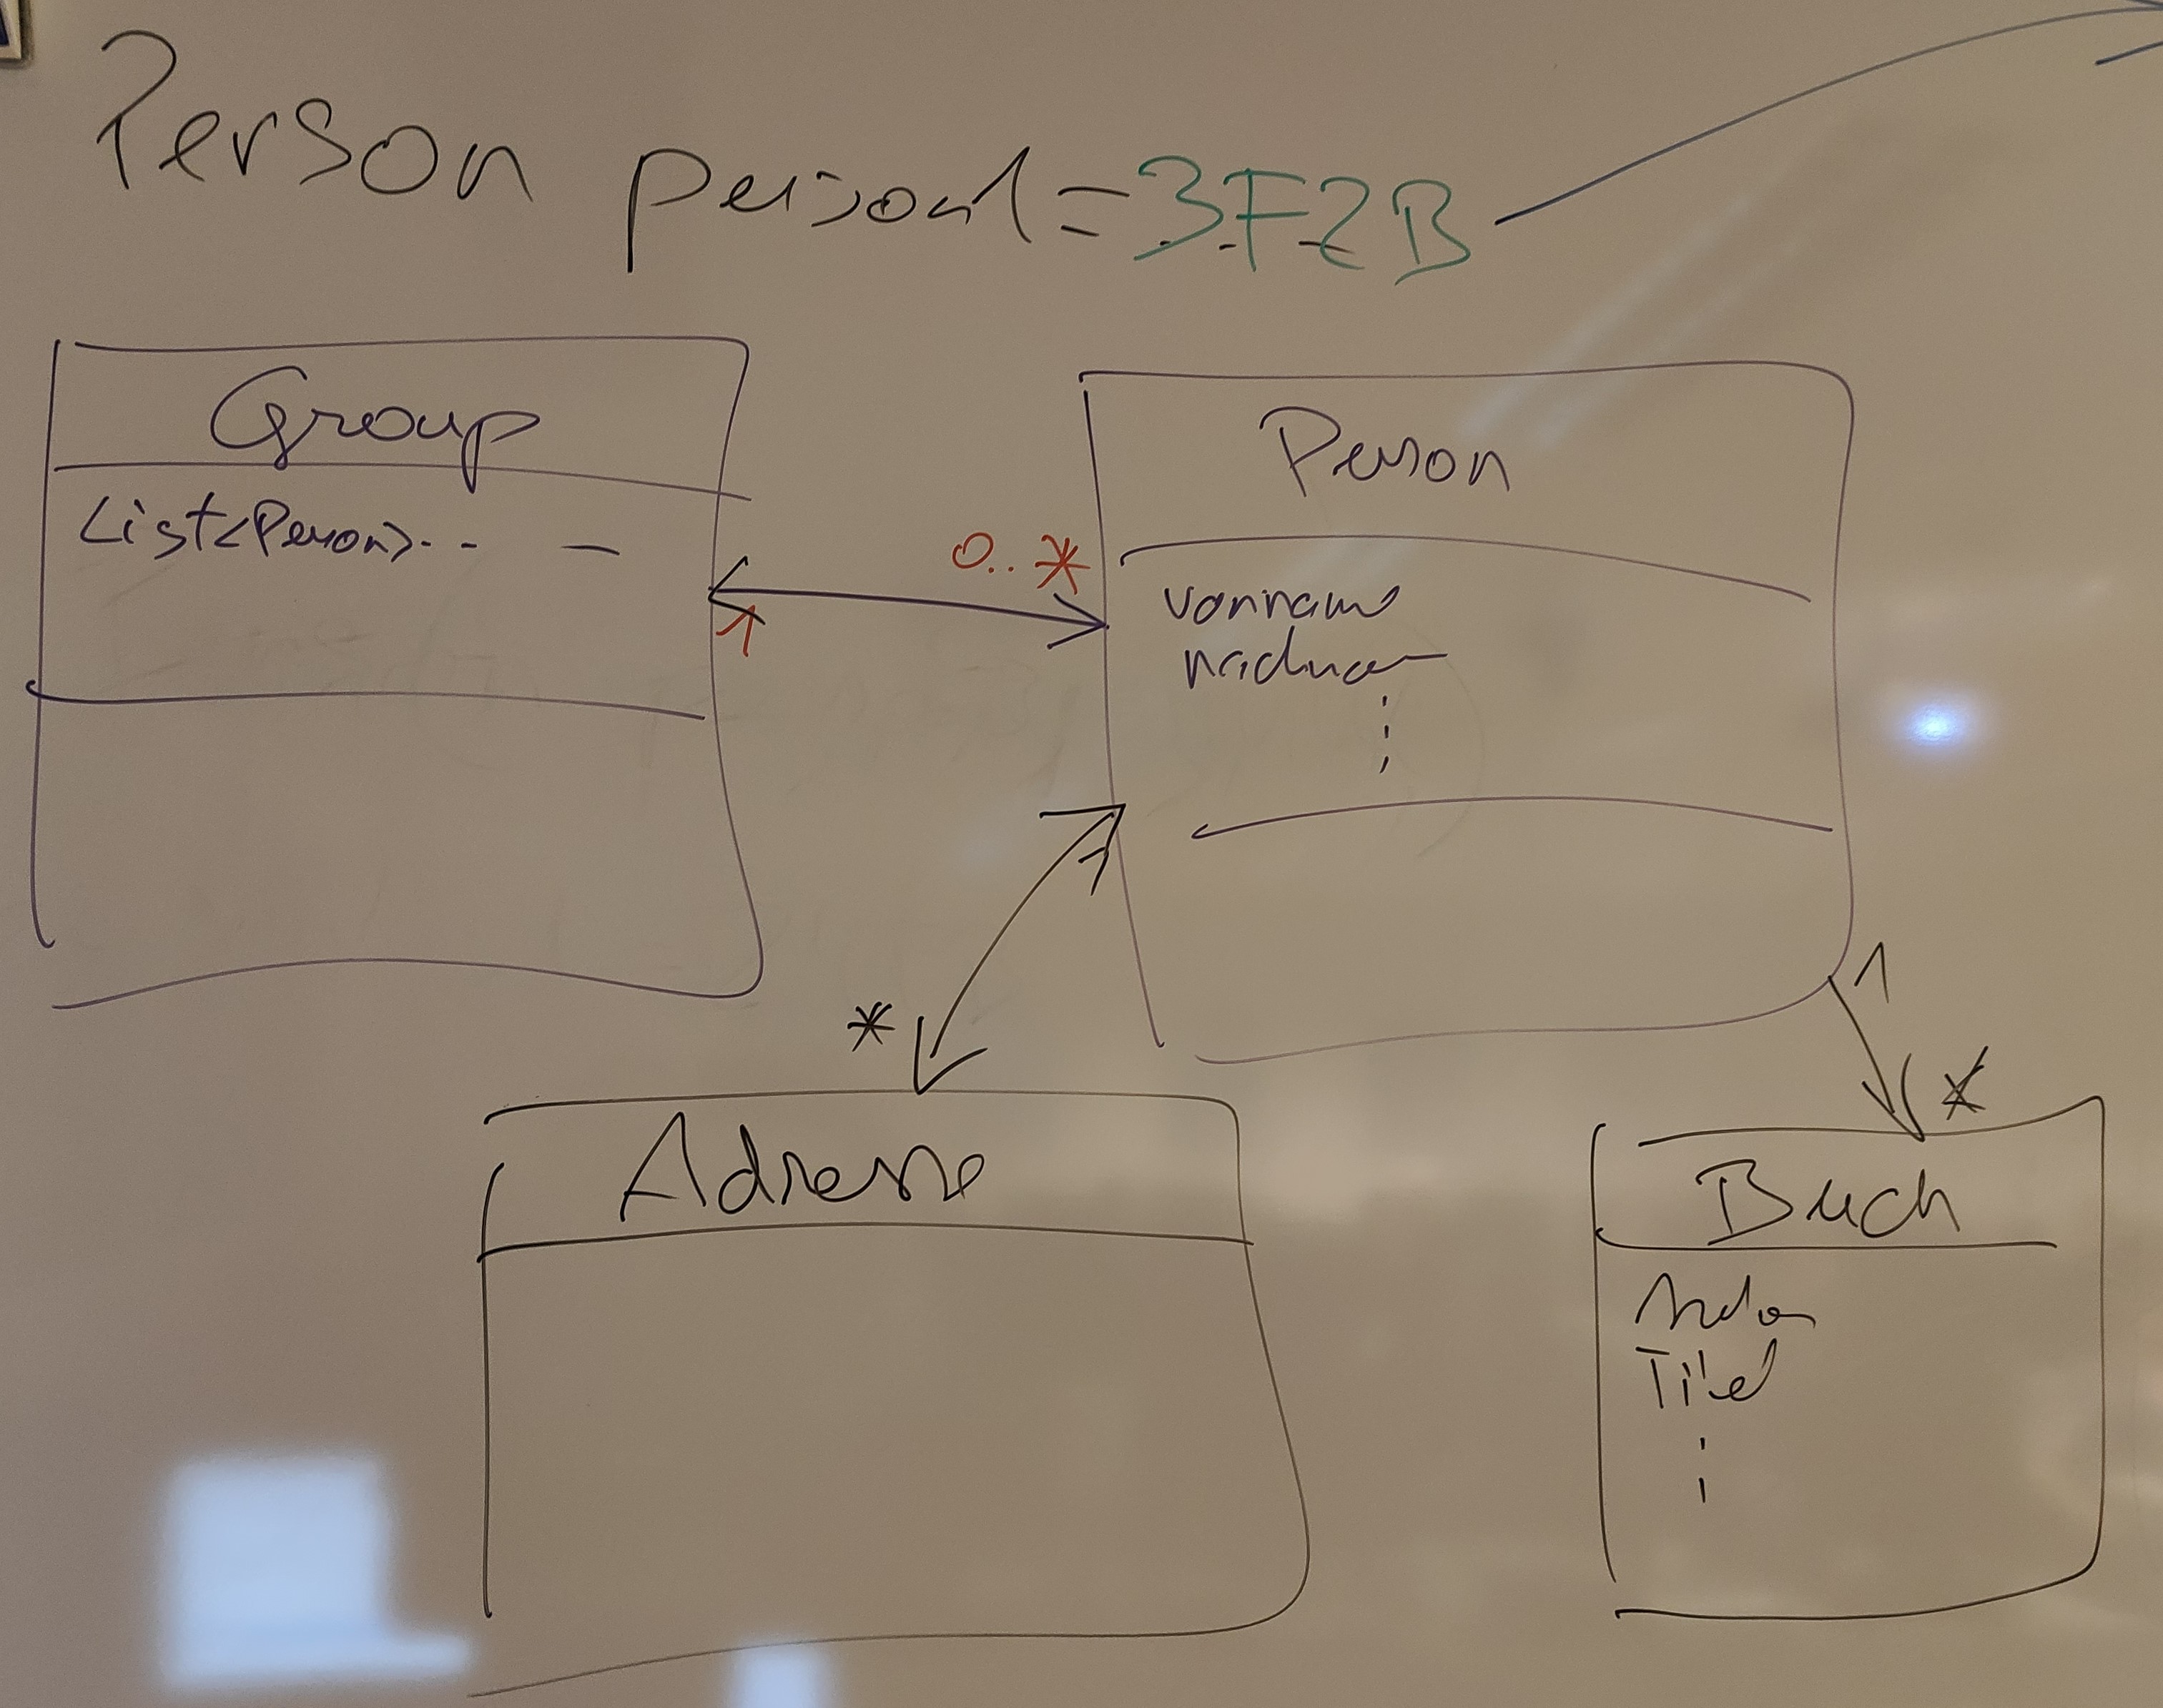 Person person1=3F2B
Group
List<Person>.. -
0..*
1
Person
vorname
nachna
1
*
Adresse
1
*
Buch
Autor
Titel